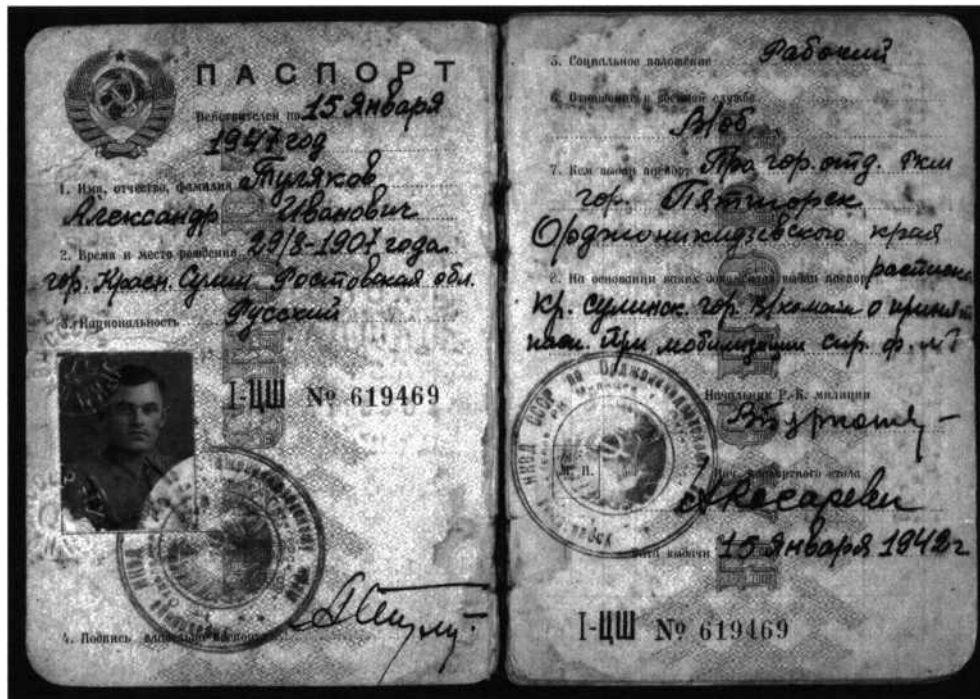 ПАСПОРТ
Действителен по 15 Января
1947 год
1. Имя, отчество, фамилия Туляков
Александр Иванович
2. Время и место рождения 29/8-1907 года.
гор. Красн. Сулин Ростовская обл.
3. Национальность Русский
I-ЦШ № 619469
4. Подпись владельца паспорта
5. Социальное положение Рабочий
6. Отношение к военной службе
В/об
7. Кем выдан паспорт гор. отд. РКМ
гор. Пятигорск
Орджоникидзевского края
8. На основании каких документов выдан паспорт расписка
Кр. Сулинск. гор. В/комата о
при мобилизации
Начальник Р.-К. милиции
М. П.
Нач. паспортного стола
Дата выдачи 15 Января 1942 г
I-ЦШ № 619469